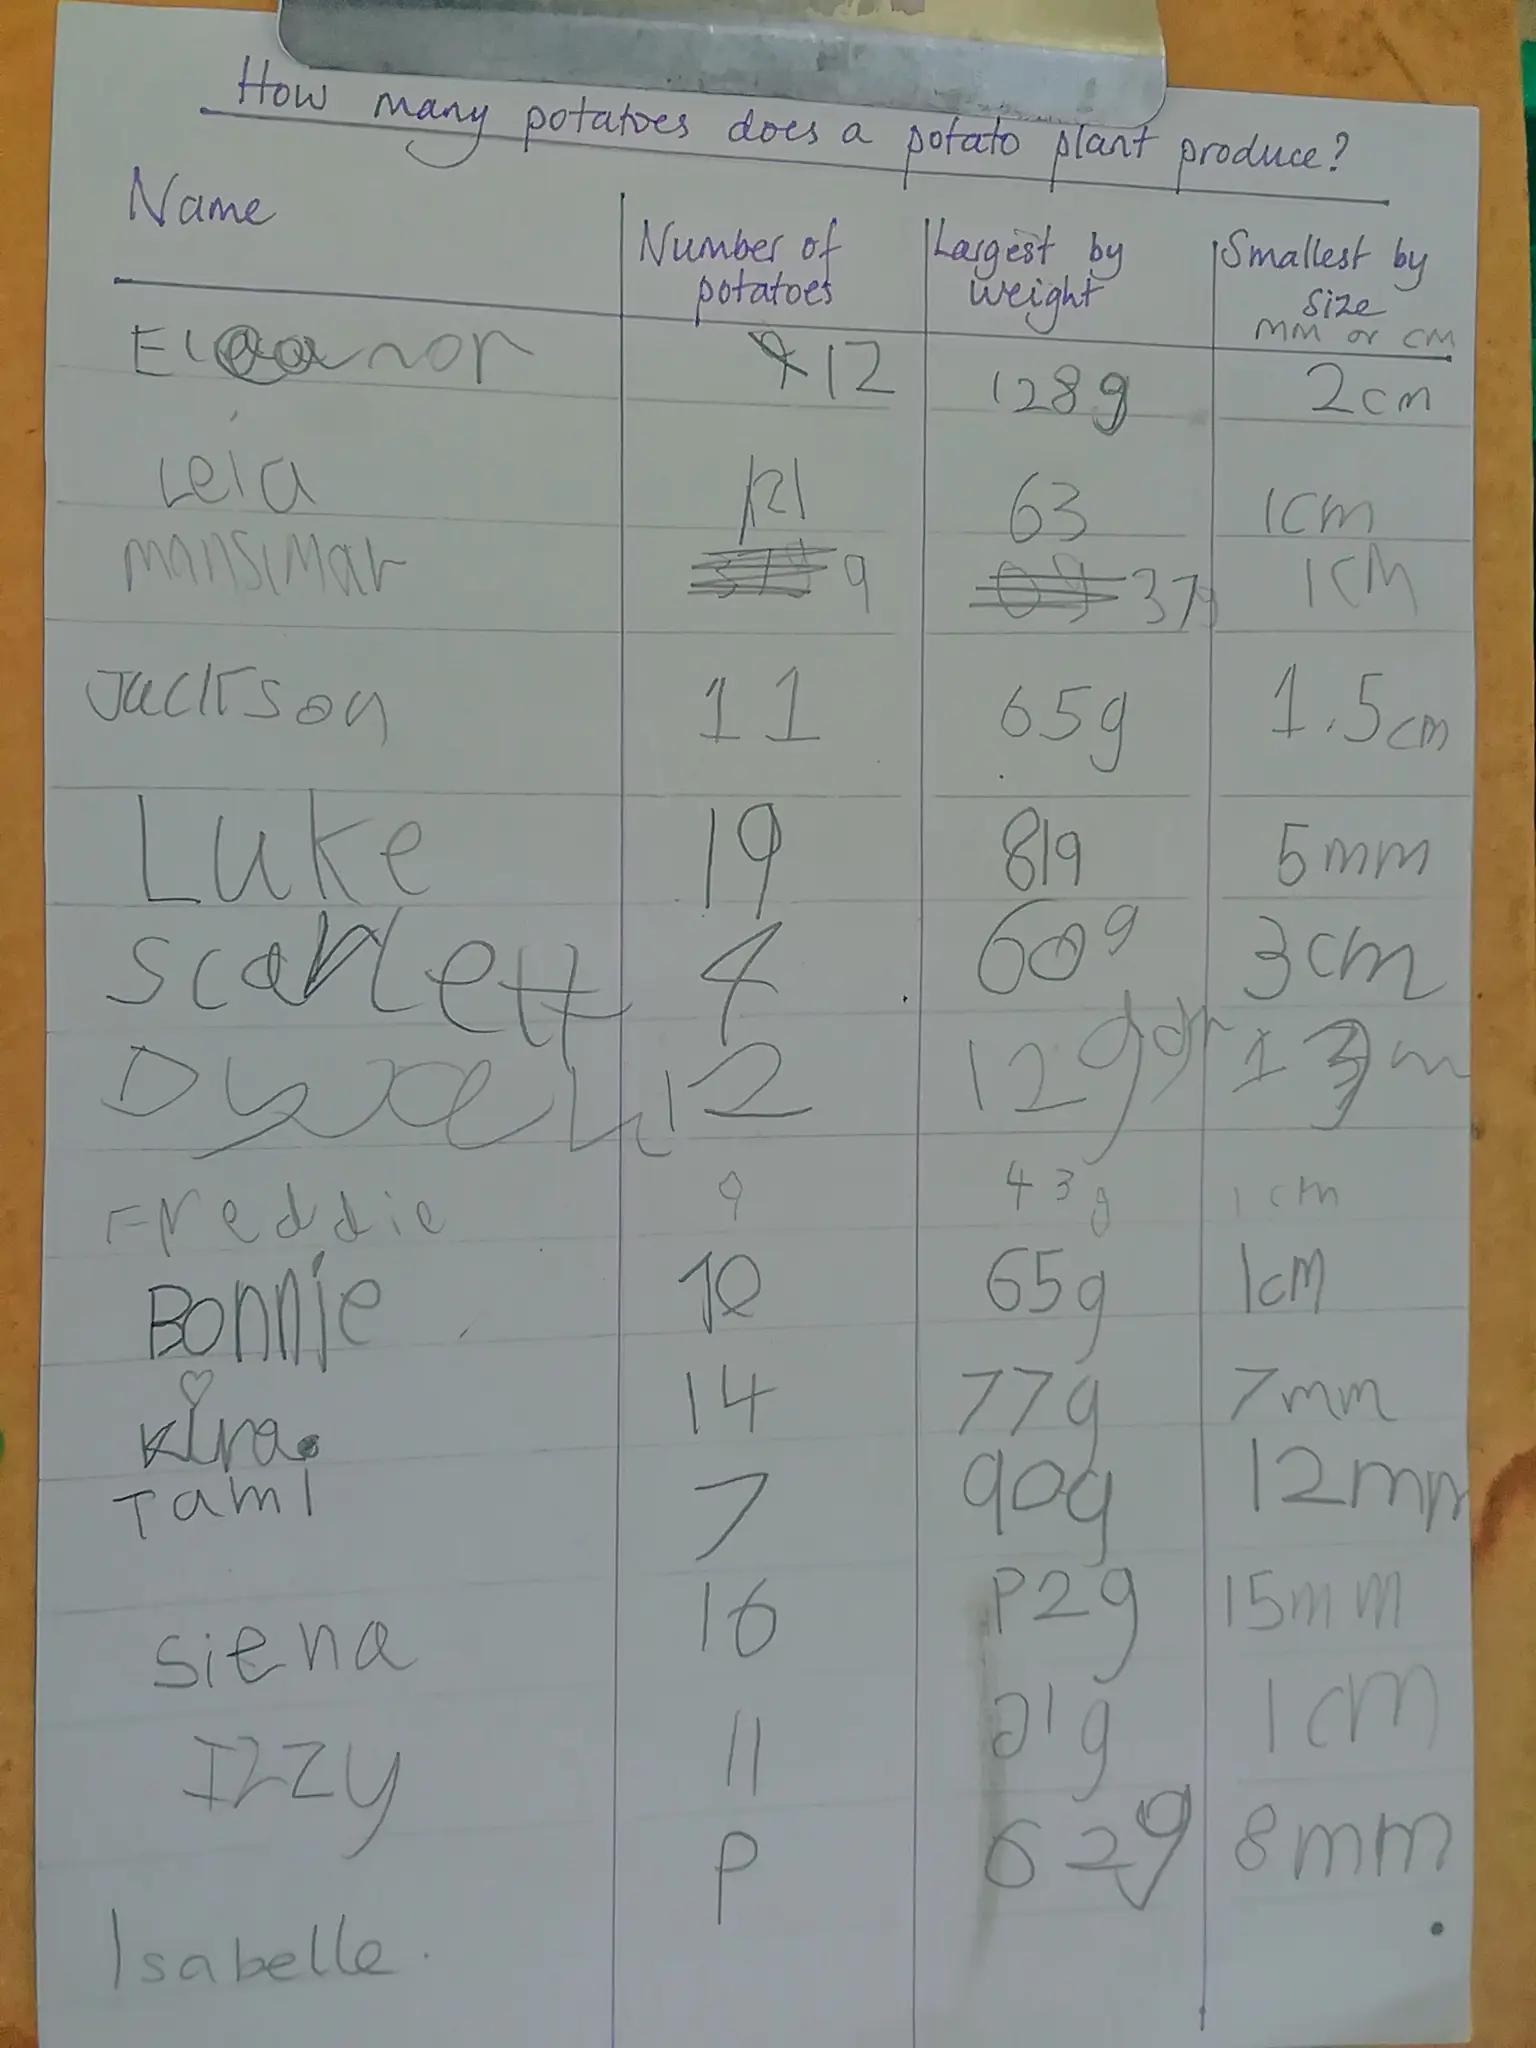 How many potatoes does a potato plant produce?
Name Number of potatoes Largest by weight Smallest by size mm or cm
Eleanor 12 128g 2cm
Leia 121 63 1cm
mansimar 9 37g 1cm
Jackson 11 65g 1.5cm
Luke 19 81g 5mm
Scarlett 4 60g 3cm
12 12g
Freddie 9 43g 1cm
Bonnie 10 65g 1cm
Kira 14 77g 7mm
Tami 7 90g 12mm
Siena 16 P2g 15mm
Izzy 11 1g 1cm
Isabelle. P 62g 8mm